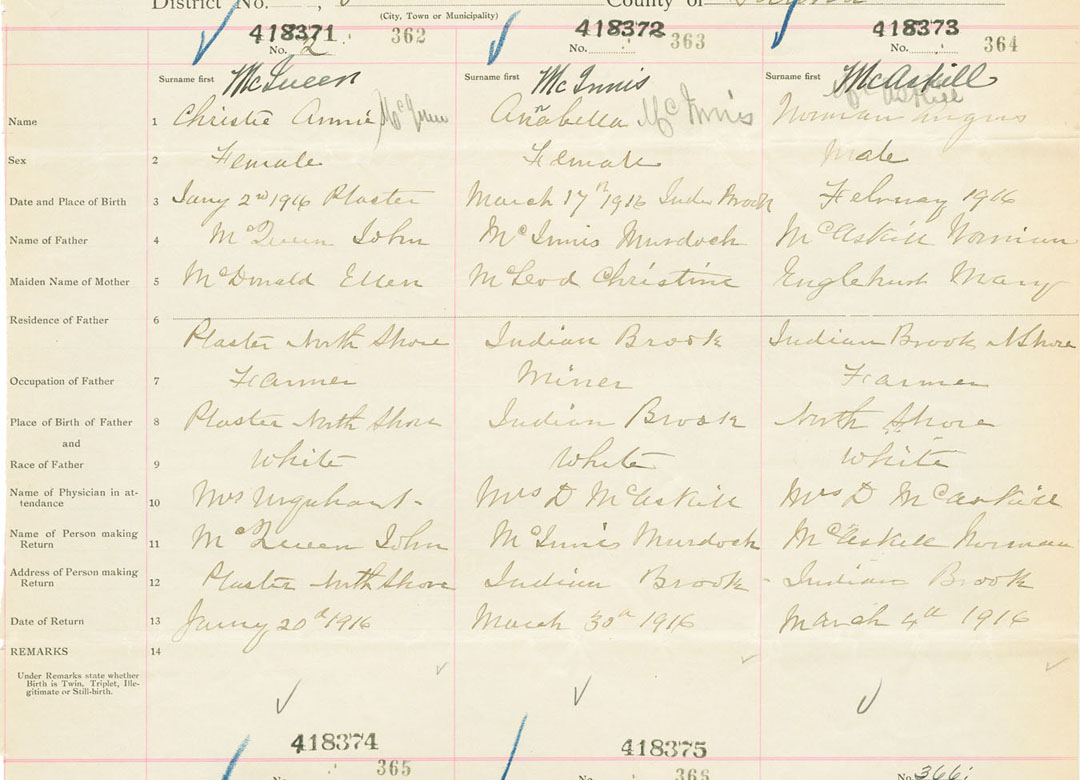 District No. County of
(City, Town or Municipality)
418371 362 418372 363 418373 364
No. 2 No. No.
Surname first McQueen Surname first McInnis Surname first McAskill
Name 1 Christie Annie McQueen Annabella McInnis Norman Angus McAskill
Sex 2 Female Female Male
Date and Place of Birth 3 Jany 2nd 1916 Plaster March 17th 1916 Indn Brook Februay 1916
Name of Father 4 McQueen John McInnis Murdock McAskill Norman
Maiden Name of Mother 5 McDonald Ellen McLeod Christine Englehust Mary
Residence of Father 6
Plaster North Shore Indian Brook Indian Brook NShore
Occupation of Father 7 Farmer Miner Farmer
Place of Birth of Father 8 Plaster North Shore Indian Brook North Shore
and
Race of Father 9 White White White
Name of Physician in at-
tendance 10 Mrs Urquhart Mrs D McAskill Mrs D McAskill
Name of Person making
Return 11 McQueen John McInnis Murdock McAskill Norman
Address of Person making
Return 12 Plaster North Shore Indian Brook Indian Brook
Date of Return 13 Jany 20th 1916 March 30th 1916 March 4th 1916
REMARKS 14
Under Remarks state whether
Birth is Twin, Triplet, Ille-
gitimate or Still-birth.
418374 418375
365 366 No. 366